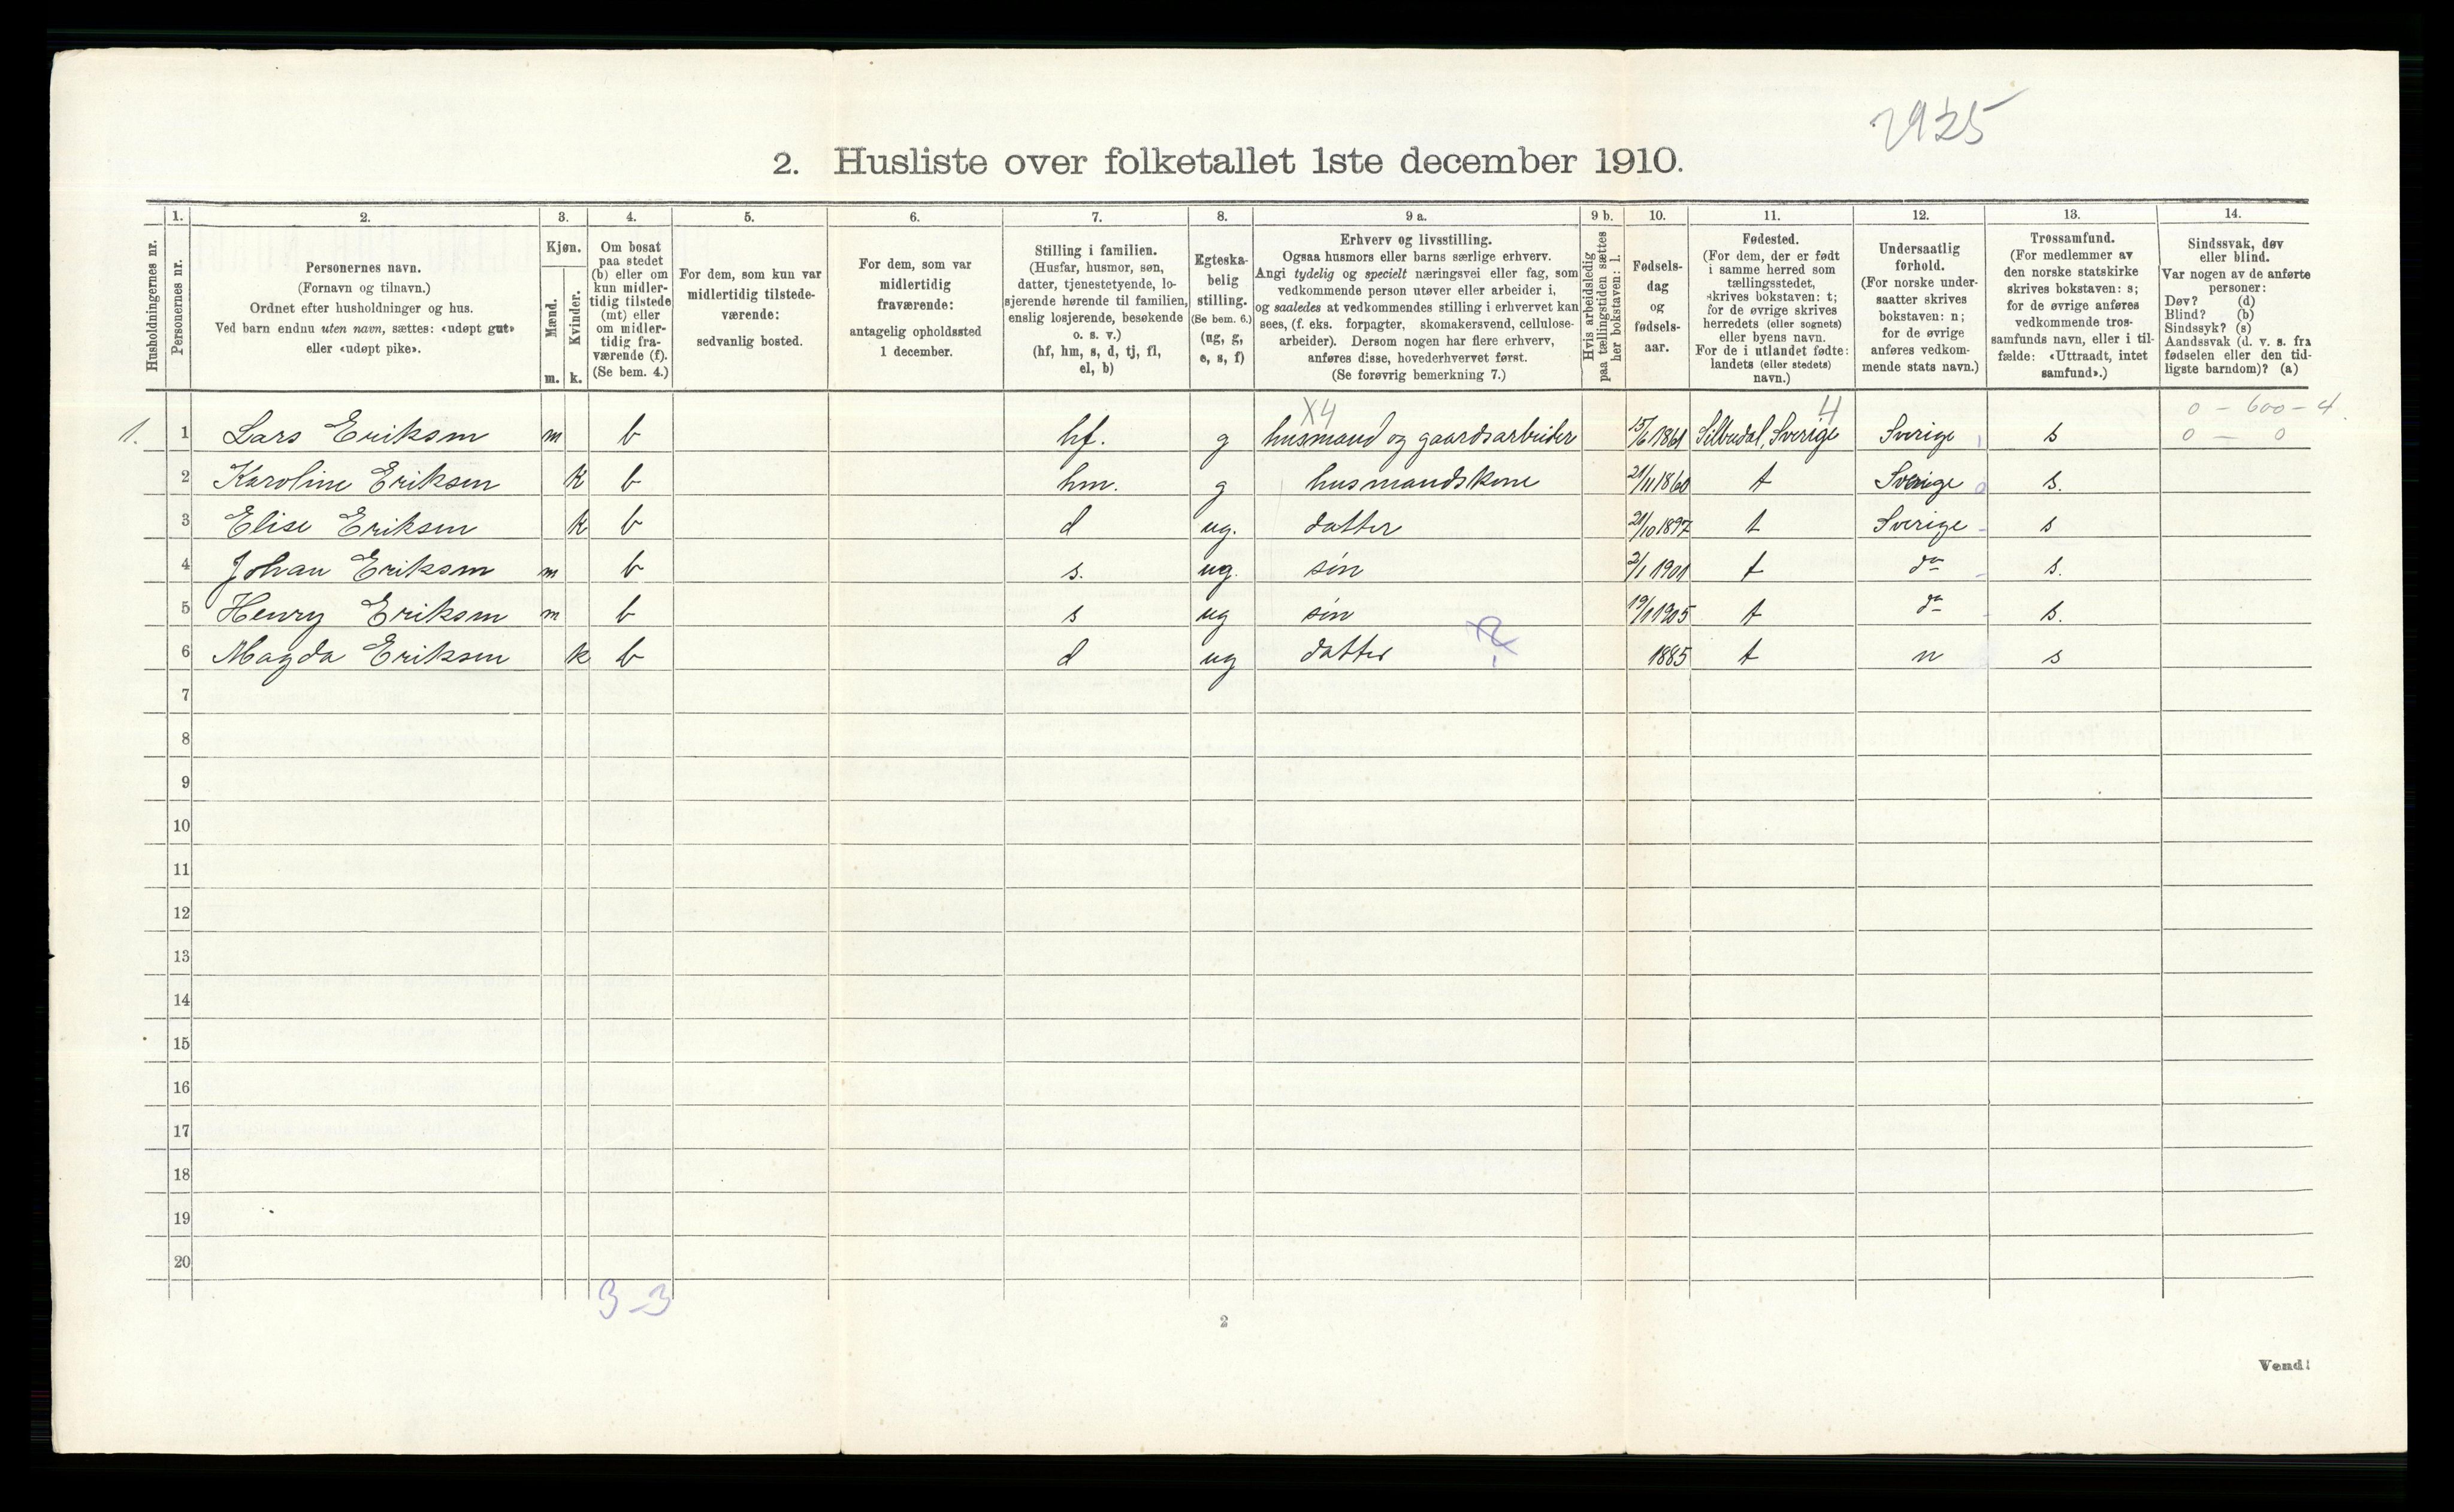 2925
2. Husliste over folketallet 1ste december 1910.
Husholdningernes nr.
1.
Personernes nr.
2.
Personernes navn.
(Fornavn og tilnavn.)
Ordnet efter husholdninger og hus.
Ved barn endnu uten navn, sættes: «udøpt gut»
eller «udøpt pike».
3.
Kjøn.
Mænd.
Kvinder.
m. k.
4.
Om bosat
paa stedet
(b) eller om
kun midler-
tidig tilstede
(mt) eller
om midler-
tidig fra-
værende (f).
(Se bem. 4.)
5.
For dem, som kun var
midlertidig tilstede-
værende:
sedvanlig bosted.
6.
For dem, som var
midlertidig
fraværende:
antagelig opholdssted
1 december.
7.
Stilling i familien.
(Husfar, husmor, søn,
datter, tjenestetyende, lo-
sjerende hørende til familien,
enslig losjerende, besøkende
o. s. v.)
(hf, hm, s, d, tj, fl,
el, b)
8.
Egteska-
belig
stilling.
(Se bem. 6.)
(ug, g,
e, s, f)
9 a.
Erhverv og livsstilling.
Ogsaa husmors eller barns særlige erhverv.
Angi tydelig og specielt næringsvei eller fag, som
vedkommende person utøver eller arbeider i,
og saaledes at vedkommendes stilling i erhvervet kan
sees, (f. eks. forpagter, skomakersvend, cellulose-
arbeider). Dersom nogen har flere erhverv,
anføres disse, hovederhvervet først.
(Se forøvrig bemerkning 7.)
9 b.
Hvis arbeidsledig
paa tællingstiden sættes
her bokstaven: l.
10.
Fødsels-
dag
og
fødsels-
aar.
11.
Fødested.
(For dem, der er født
i samme herred som
tællingsstedet,
skrives bokstaven: t;
for de øvrige skrives
herredets (eller sognets)
eller byens navn.
For de i utlandet fødte:
landets (eller stedets)
navn.)
12.
Undersaatlig
forhold.
(For norske under-
saatter skrives
bokstaven: n;
for de øvrige
anføres vedkom-
mende stats navn.)
13.
Trossamfund.
(For medlemmer av
den norske statskirke
skrives bokstaven: s;
for de øvrige anføres
vedkommende tros-
samfunds navn, eller i til-
fælde: «Uttraadt, intet
samfund».)
14.
Sindssvak, døv
eller blind.
Var nogen av de anførte
personer:
Døv? (d)
Blind? (b)
Sindssyk? (s)
Aandssvak (d. v. s. fra
fødselen eller den tid-
ligste barndom)? (a)
X4 4 0 - 600 - 4
1. 1 Lars Eriksen m b hf. g husmand og gaardsarbeider 15/6 1861 Sverige Sverige s 0 - 0
2 Karoline Eriksen k b hm. g husmandskone 21/11 1860 t Sverige s.
3 Elise Eriksen k b d ug. datter 21/10 1897 t Sverige s
4 Johan Eriksen m b s. ug. søn 2/1 1901 t do s.
5 Henry Eriksen m b s ug søn 19/1 1905 t do s.
6 Magda Eriksen k b d ug datter ? 1885 t n s
7
8
9
10
11
12
13
14
15
16
17
18
19
20
3-3
2
Vend!